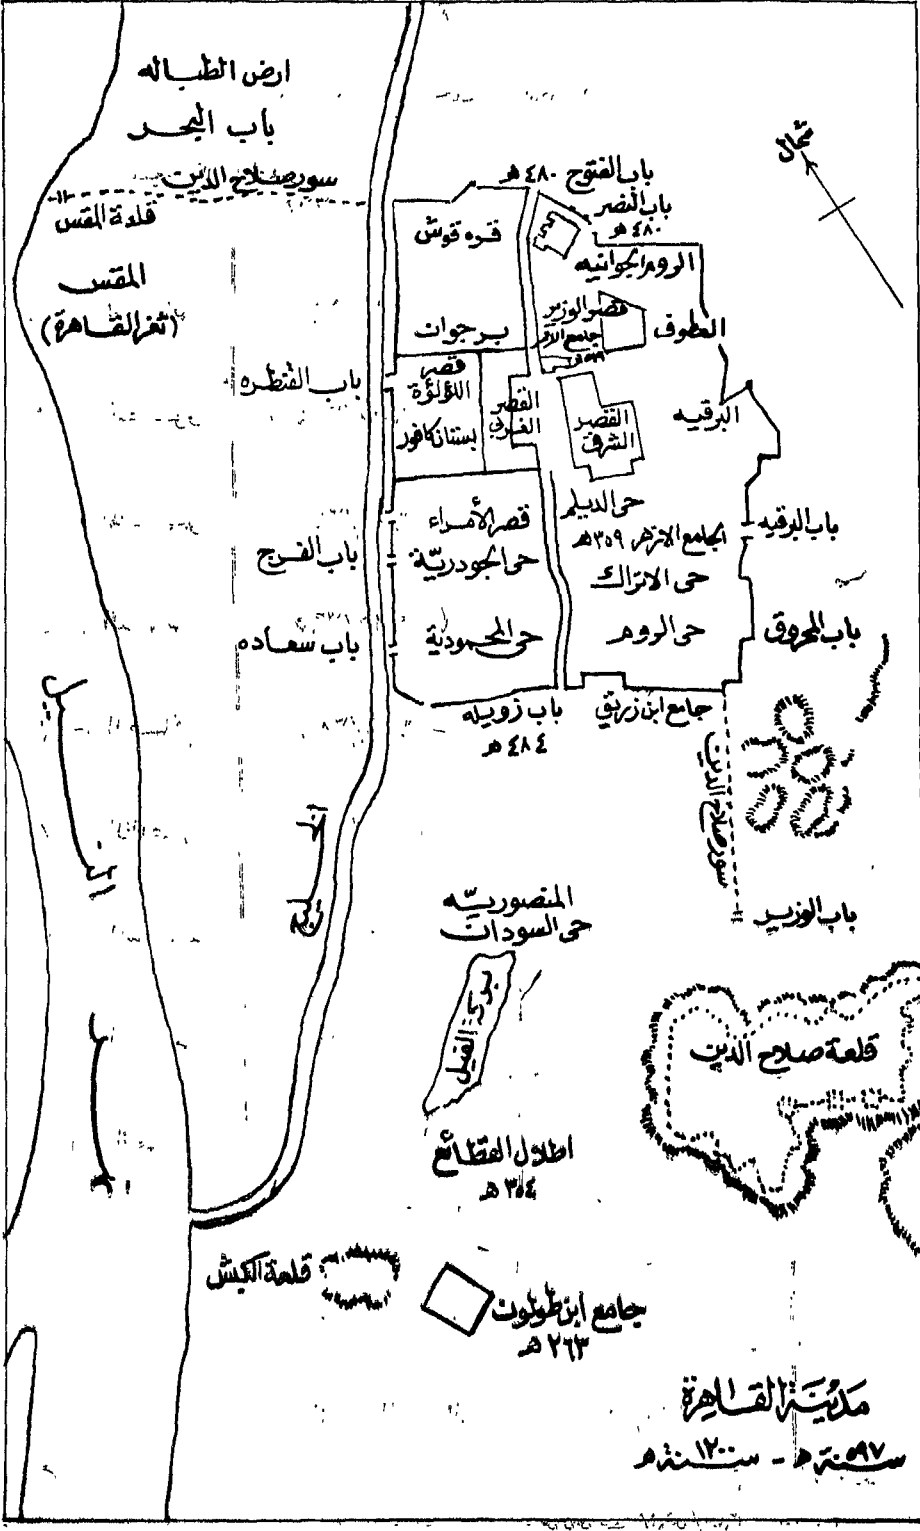 ارض الطباله
باب البحر
سور صلاح الدين
قلعة المقس
المقس
(ثغر القاهرة)
شمال
باب الفتوح ٤٨٠ هـ
باب النصر
٤٨٠ هـ
قره قوش
الروم الجوانيه
قصر الوزير
جامع الاقمر
٥١٩ هـ
العطوف
برجوان
قصر
اللؤلؤة
باب القنطره
القصر
الغربي
القصر
الشرقي
البرقيه
بستان كافور
حى الديلم
قصر الأمراء
الجامع الازهر ٣٥٩ هـ
باب البرقيه
باب الفرج
حى الجودريّة
حى الاتراك
باب سعاده
حى المحمودية
حى الروم
باب المحروق
باب زويله
٤٨٤ هـ
جامع ابن زريق
سور صلاح الدين
النيل
الخليج
المنصوريّه
حى السودان
باب الوزير
بركة الفيل
قلعة صلاح الدين
اطلال القطائع
٣٥٤ هـ
قلعة الكبش
جامع ابن طولون
٢٦٣ هـ
مدينة القاهرة
سنة ٥٩٧ هـ - سنة ١٢٠٠ هـ